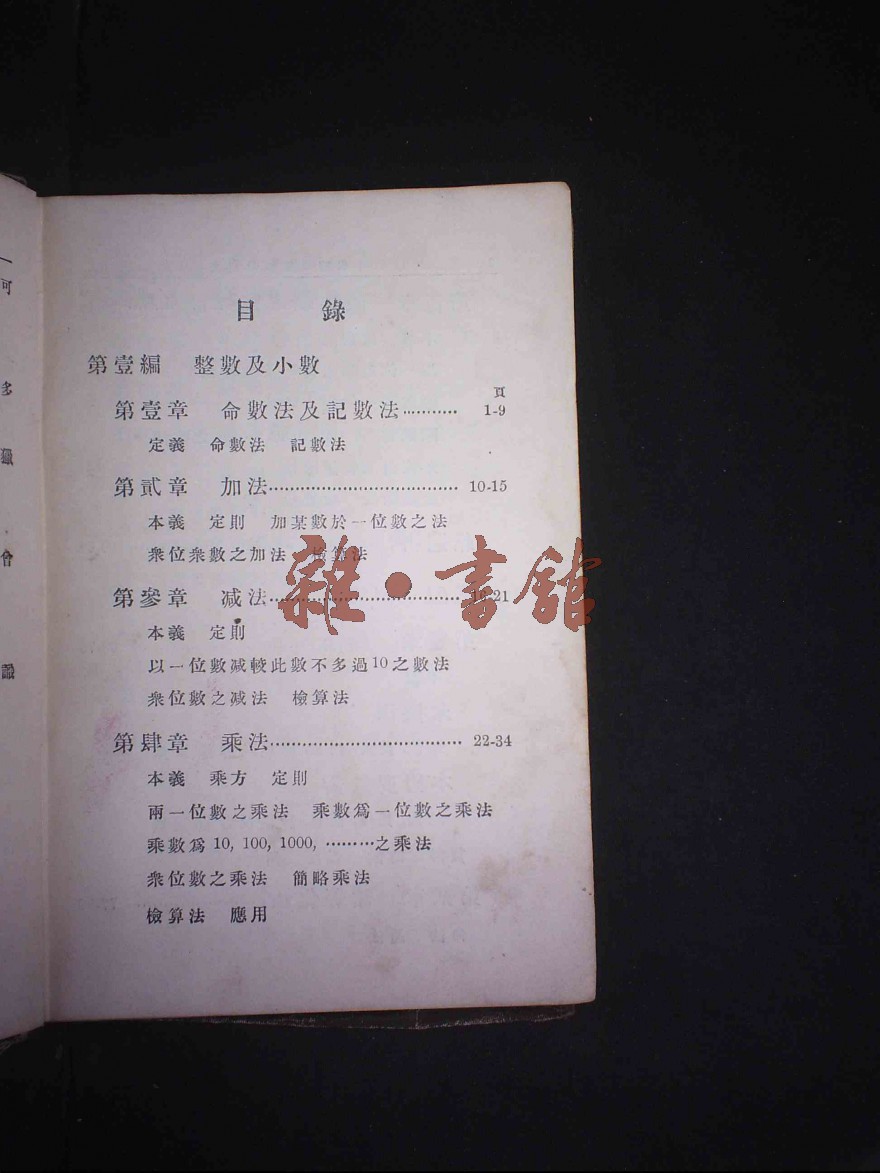 目錄
第壹編 整數及小數
頁
第壹章 命數法及記數法………… 1-9
定義 命數法 記數法
第貳章 加法………………………………… 10-15
本義 定則 加某數於一位數之法
衆位衆數之加法 檢算法
第參章 減法………………………………… 16-21
本義 定則
以一位數減較此數不多過10之數法
衆位數之減法 檢算法
第肆章 乘法………………………………… 22-34
本義 乘方 定則
兩一位數之乘法 乘數爲一位數之乘法
乘數爲10, 100, 1000, ………之乘法
衆位數之乘法 簡略乘法
檢算法 應用
雜·書館